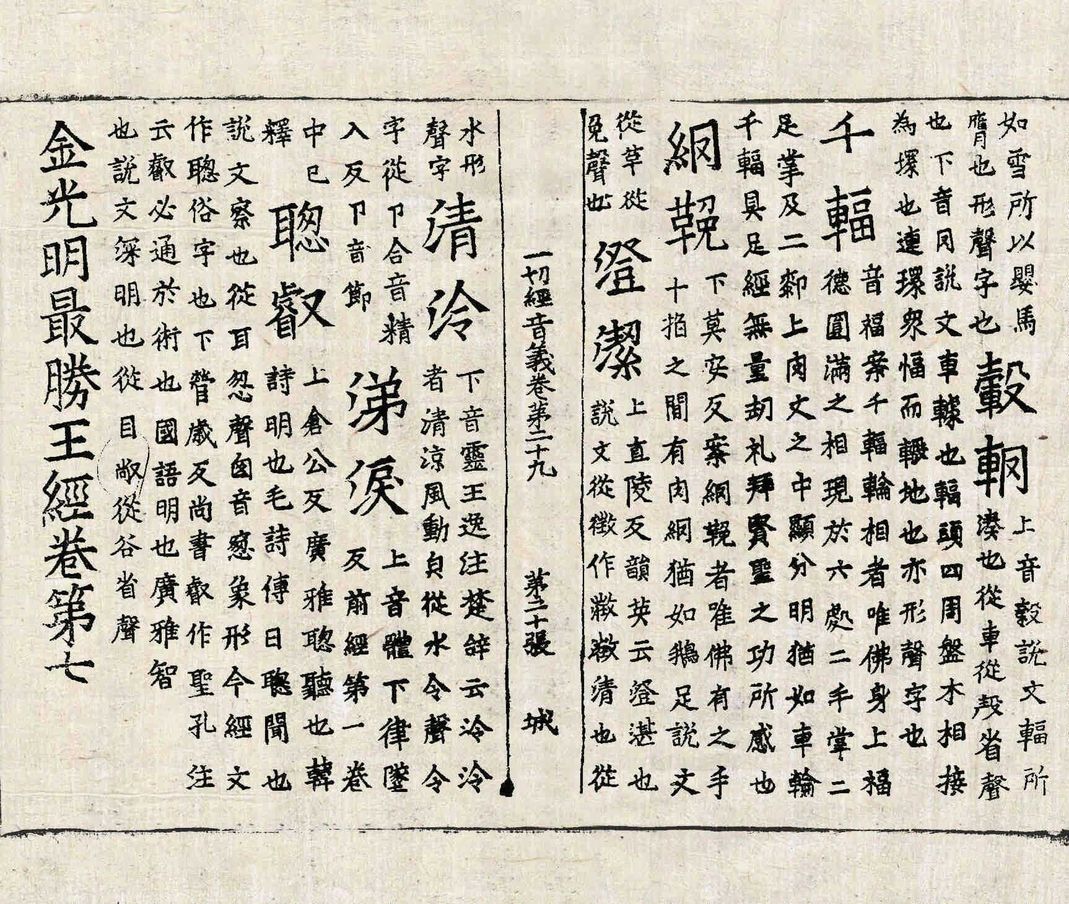 如雪所以嬰馬
膺也形聲字也 轂輞 上音穀說文輻所
湊也從車從𣪊省聲
也下音同說文車輮也輻頭四周盤木相接
為環也連環眾幅而轢地也亦形聲字也
千輻 音福案千輻輪相者唯佛身上福
德圓滿之相現於六處二手掌二
足掌及二𨄔上肉文之中顯分明猶如車輪
千輻具足經無量劫礼拜賢聖之功所感也
網鞔 下莫安反案網鞔者唯佛有之手
十指之間有肉網猶如鵝足說文
從草從
免聲也 澄潔 上直陵反韻英云澄湛也
說文從徵作澂澂清也從
一切經音義卷第二十九 第三十張 城
水形
聲字 清泠 下音靈王逸注楚辝云泠泠
者清涼風動皃從水令聲令
字從卩合音精
入反卩音節 涕淚 上音體下律墜
反前經第一卷
中已
釋 聰叡 上倉公反廣雅聰聽也韓
詩明也毛詩傳曰聰聞也
說文察也從耳怱聲囱音窓象形今經文
作聰俗字也下營歲反尚書叡作聖孔注
云叡必通於術也國語明也廣雅智
也說文深明也從目𣦻從谷省聲
金光明最勝王經卷第七